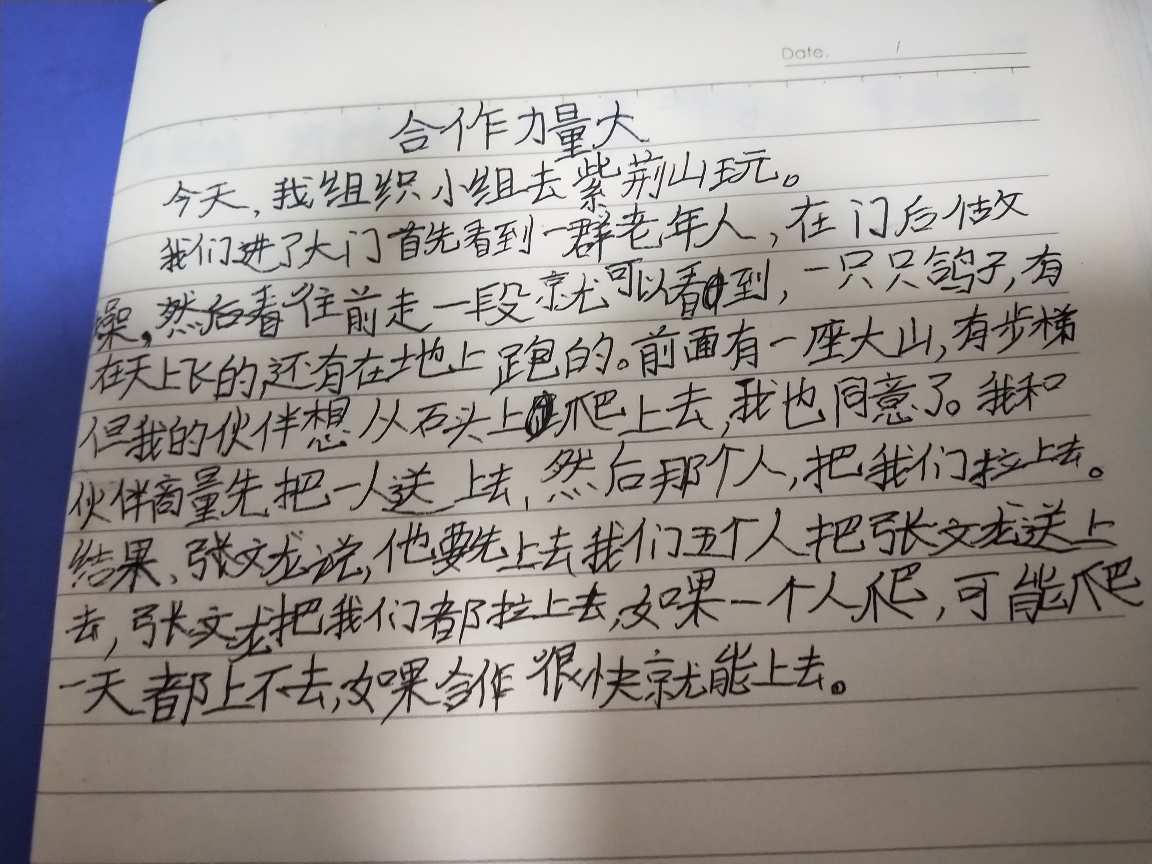 Date. 1
合作力量大
今天,我组织小组去紫荆山玩。
我们进了大门首先看到一群老年人,在门后做
操。然后看往前走一段就可以看到,一只只鸽子,有
在天上飞的,还有在地上跑的。前面有一座大山,有步梯
但我的伙伴想从石头上爬上去,我也同意了。我和
伙伴商量先把一人送上去,然后那个人,把我们拉上去。
结果、张文龙说,他要先上去我们五个人把张文龙送上
去,张文龙把我们都拉上去,如果一个人爬,可能爬
一天都上不去,如果合作很快就能上去。